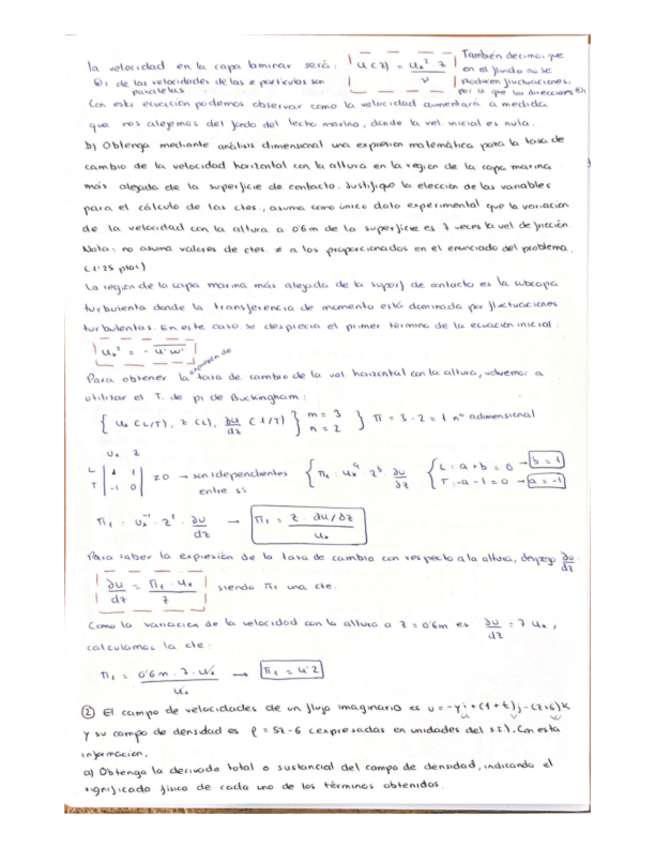 la velocidad en la capa laminar será: u(z) = u*² z / ν
También decimos que en el fluido no se producen fluctuaciones, por lo que las direcciones
de las velocidades de las ≠ partículas son paralelas
Con esta ecuación podemos observar como la velocidad aumentará a medida
que nos alejemos del fondo del lecho marino, donde la vel. inicial es nula.
b) Obtenga mediante análisis dimensional una expresión matemática para la tasa de
cambio de la velocidad horizontal con la altura en la región de la capa marina
más alejada de la superficie de contacto. Justifique la elección de las variables
para el cálculo de las ctes., asuma como único dato experimental que la variación
de la velocidad con la altura a 0'6m de la superficie es 7 veces la vel de fricción.
Nota: no asuma valores de ctes. ≠ a los proporcionados en el enunciado del problema.
(1'25 ptos)
La región de la capa marina más alejada de la superf de contacto es la subcapa
turbulenta donde la transferencia de momento está dominada por fluctuaciones
turbulentas. En este caso se desprecia el primer término de la ecuación inicial:
u*² = - u'w'
Para obtener la expresión de tasa de cambio de la vel. horizontal con la altura, volvemos a
utilizar el T. de pi de Buckingham:
{ u* (L/T), z (L), ∂u/dz (1/T) } m = 3 n = 2 } π = 3 - 2 = 1 nº adimensional
u* z
L | 1 1 |
T | -1 0 | ≠ 0 → son idependientes entre sí { π1 : u*ᵃ zᵇ · ∂u/∂z { L: a + b = 0 → b = 1
T: -a - 1 = 0 → a = -1
π1 : u*⁻¹ · z¹ · ∂u/dz → π1 = z · ∂u/∂z / u*
Para saber la expresión de la tasa de cambio con respecto a la altura, despejo ∂u/dz:
∂u/dz = π1 · u* / z siendo π1 una cte.
Como la variación de la velocidad con la altura a z = 0'6m es ∂u/dz = 7 u*,
calculamos la cte:
π1 = 0'6m · 7 · u* / u* → π1 = 4'2
② El campo de velocidades de un flujo imaginario es u = -yi + (1+t)j - (z+6)k
u v w
y su campo de densidad es ρ = 5z - 6 (expresadas en unidades del SI). Con esta
información.
a) Obtenga la derivada total o sustancial del campo de densidad, indicando el
significado físico de cada uno de los términos obtenidos.